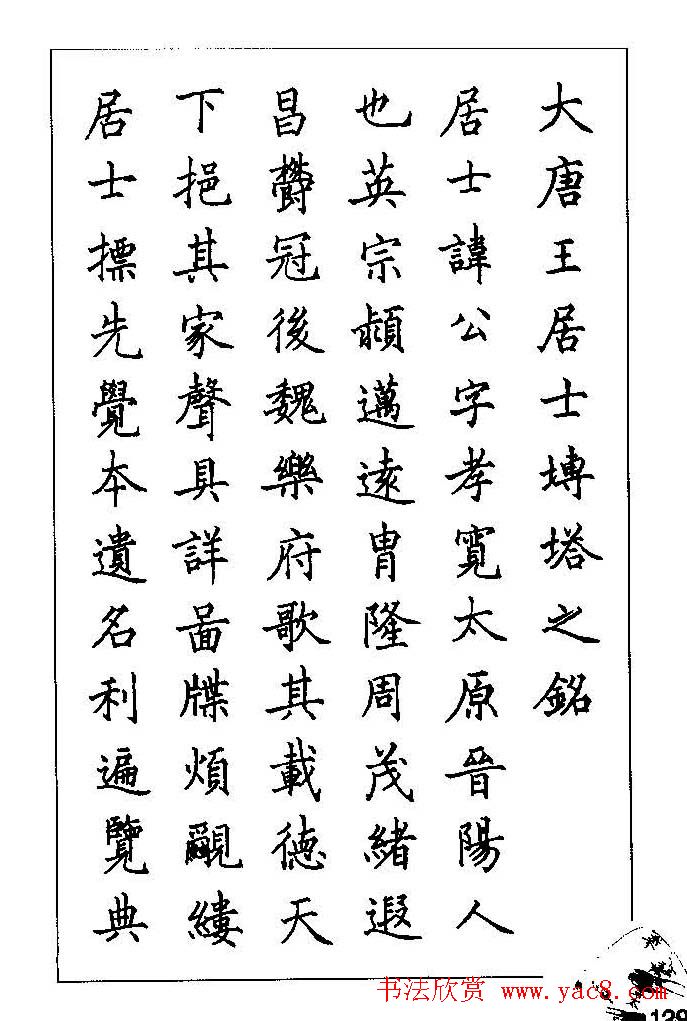 大唐王居士塼塔之銘
居士諱公字孝寛太原晉陽人
也英宗䫡邁遠胄隆周茂緒遐
昌欝冠後魏樂府歌其載德天
下挹其家聲具詳啚牒煩覼縷
居士摽先覺夲遺名利遍覽典
书法欣赏 www.yac8.com
129